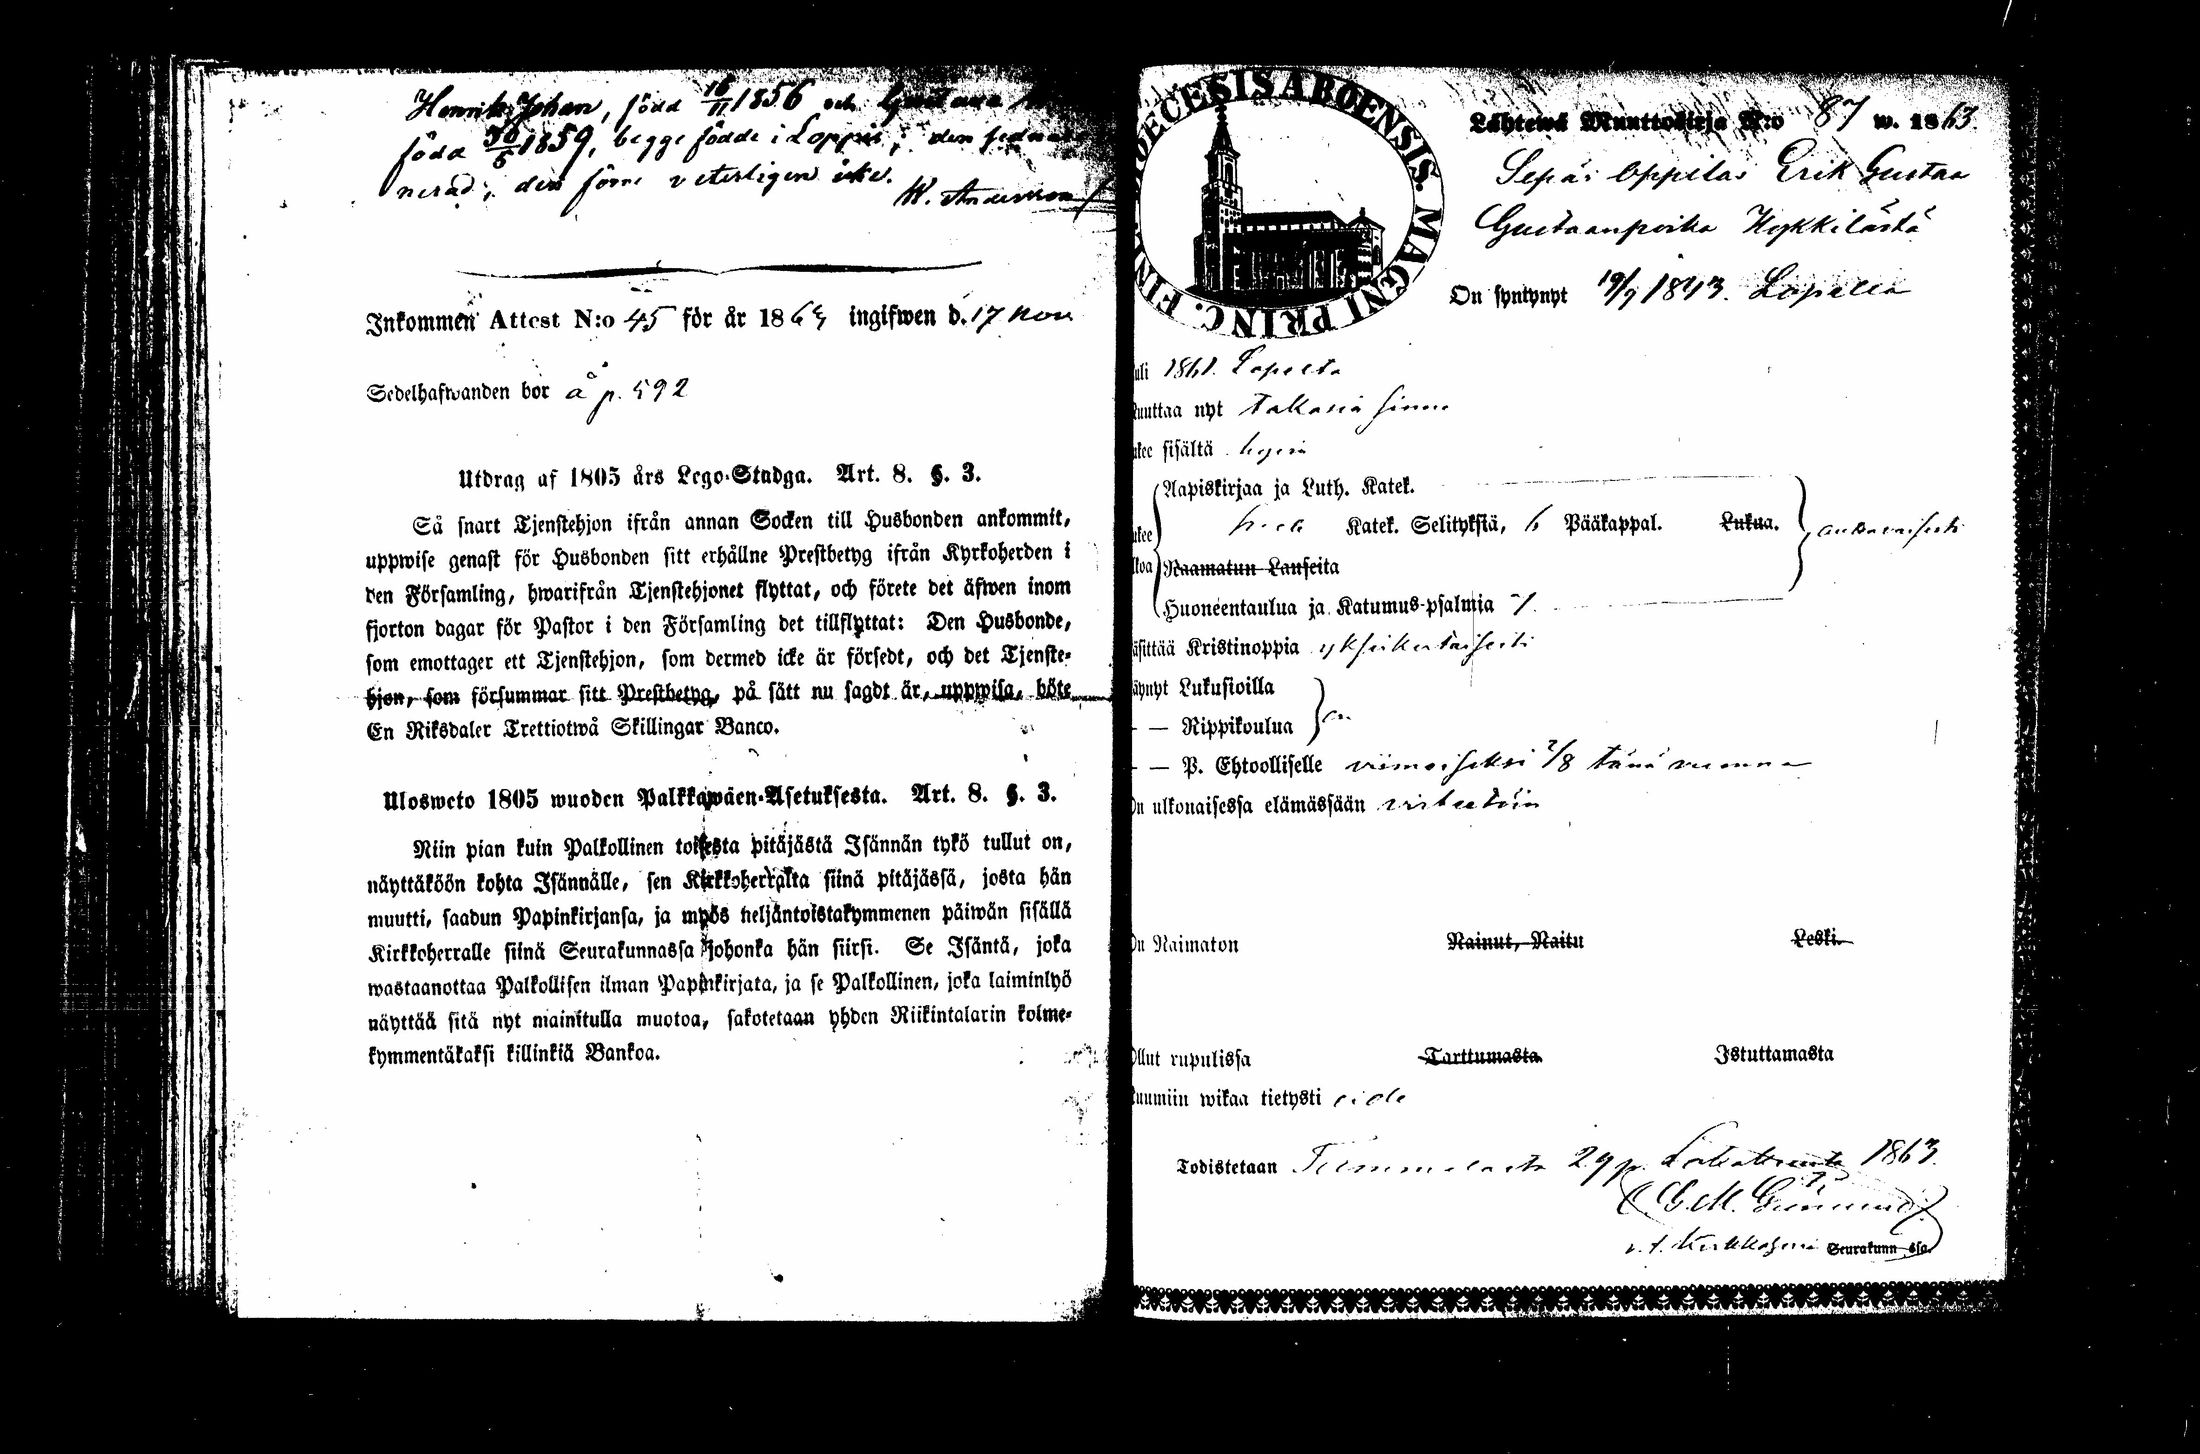 Henrik Johan, född 16/11 1856 och Gustava
född 30/5 1859, begge födde i Loppis; den sedna
nerad, den förre veterligen icke.
W. Andersson
Inkommen Attest N:o 45 för år 1863 ingifwen d. 17 Nov
Sedelhafwanden bor å p. 592
Utdrag af 1805 års Lego-Stadga. Art. 8. §. 3.
Så snart Tjenstehjon ifrån annan Socken till Husbonden ankommit,
uppwise genast för Husbonden sitt erhållne Prestbetyg ifrån Kyrkoherden i
den Församling, hwarifrån Tjenstehjonet flyttat, och förete det äfwen inom
fjorton dagar för Pastor i den Församling det tillflyttat: Den Husbonde,
som emottager ett Tjenstehjon, som dermed icke är försedt, och det Tjenste-
hjon, som försummar sitt Prestbetyg, på sätt nu sagdt är, uppwisa, böte
En Riksdaler Trettiotwå Skillingar Banco.
Ulosweto 1805 wuoden Palkkawäen-Asetuksesta. Art. 8. §. 3.
Niin pian kuin Palkollinen toisesta pitäjästä Isännän tykö tullut on,
näyttäköön kohta Isännälle, sen Kirkkoherralta siinä pitäjässä, josta hän
muutti, saadun Papinkirjansa, ja myös neljäntoistakymmenen päiwän sisällä
Kirkkoherralle siinä Seurakunnassa johonka hän siirsi. Se Isäntä, joka
wastaanottaa Palkollisen ilman Papinkirjata, ja se Palkollinen, joka laiminlyö
näyttää sitä nyt mainitulla muotoa, sakotetaan yhden Riikintalarin kolme-
kymmentäkaksi killinkiä Bankoa.
DIOECESIS ABOENSIS. MAGNI PRINC. FINL.
Lähtewä Muuttokirja N:o 87 w. 1863.
Sepän Oppilas Erik Gustaa
Gustaanpoika Hykkilästä
On syntynyt 19/9 1843. Lopella
uli 1861. Lopelta
uuttaa nyt takasin sinne
ukee sisältä hyvin
Aapiskirjaa ja Luth. Katek.
ukee Katek. Selityksiä, 6 Pääkappal. Lukua. auttavaisesti
lkoa Raamatun Lauseita
Huoneentaulua ja Katumus-psalmia 7.
äsittää Kristinoppia yksinkertaisesti
äynyt Lukusioilla
— — Rippikoulua on
— — P. Ehtoolliselle viimeiseksi 2/8 tänä vuonna
On ulkonaisessa elämässään virheetöin
On Naimaton Nainut, Naitu Leski.
Ollut rupulissa Tarttumasta Istuttamasta
uumiin wikaa tietysti ei ole
Todistetaan Tammelasta 29 p. Lokakuuta 1863.
v. t. Kirkkoherra Seurakunn ssa.